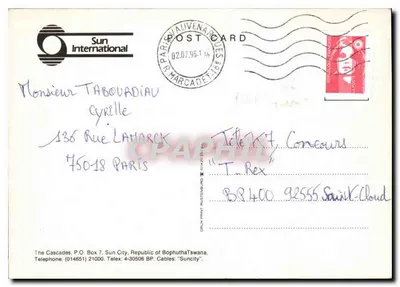 Sun
International
POST CARD
PARIS AUVENARGUES
02.07.96
R. MARCADET
Monsieur TABOURDIAU
Cyrille
136 Rue LAMARCK
750-18 PARIS
CPARAMA
Title K7 Concours
"T. Rex"
BP400 92555 Saint-Cloud
The Cascades, P.O. Box 7, Sun City, Republic of BophuthaTswana.
Telephone: (014651) 21000. Telex: 4-30506 BP. Cables: "Suncity".